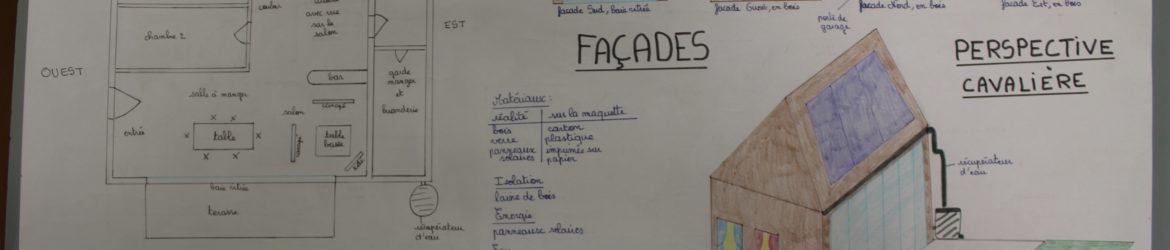 couloir
avec vue
sur le
salon
chambre 2
EST
OUEST
bar
garde
manger
et
buanderie
salle à manger
salon
canapé
entrée
table
table
basse
baie vitrée
terasse
récupérateur
d'eau
façade Sud, baie vitrée
façade Ouest, en bois
porte de
garage
façade Nord, en bois
façade Est, en bois
FAÇADES
Matériaux:
réalité
sur la maquette
bois
carton
verre
plastique
panneaux
solaires
imprimée sur
papier
Isolation
laine de bois
Énergie
panneaux solaires
PERSPECTIVE
CAVALIÈRE
récupérateur
d'eau